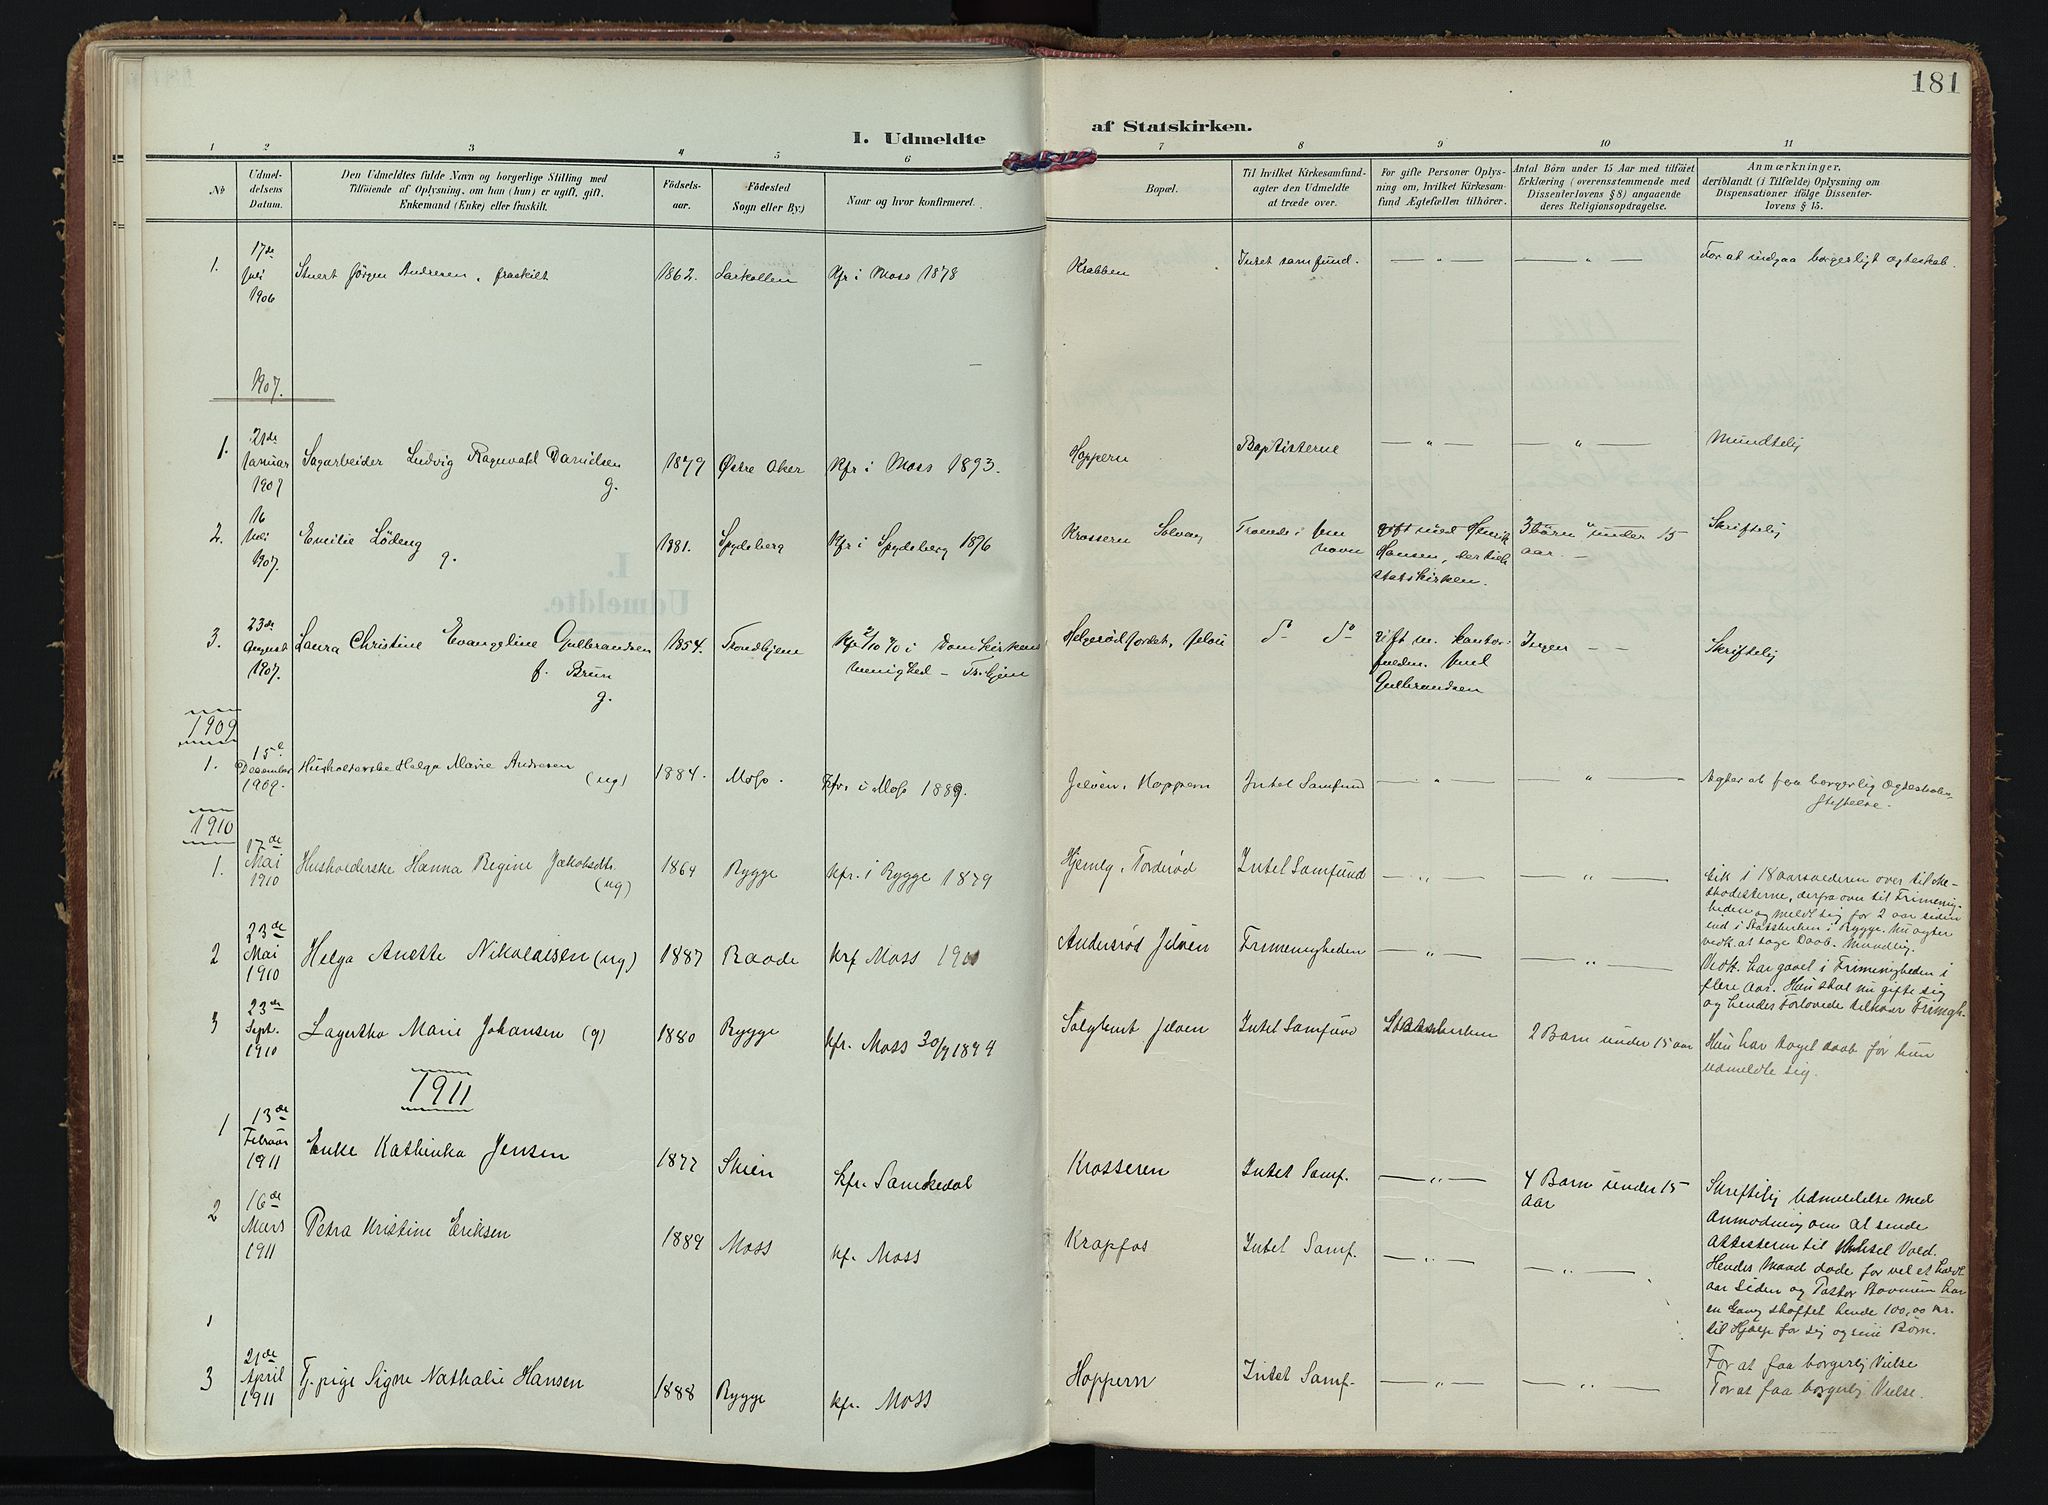 181
I. Udmeldte af Statskirken.
1 2 3 4 5 6 7 8 9 10 11
No
Udmel-
delsens
Datum.
Den Udmeldtes fulde Navn og borgerlige Stilling med
Tilföiende af Oplysning, om han (hun) er ugift, gift,
Enkemand (Enke) eller fraskilt.
Födsels-
aar.
Födested
Sogn eller By.)
Naar og hvor konfirmeret.
Bopæl.
Til hvilket Kirkesamfund-
agter den Udmeldte
at træde over.
For gifte Personer Oplys-
ning om, hvilket Kirkesam-
fund Ægtefællen tilhörer.
Antal Börn under 15 Aar med tilföiet
Erklæring (overensstemmende med
Dissenterlovens § 8) angaaende
deres Religionsopdragelse.
Anmærkninger,
deriblandt (i Tilfælde) Oplysning om
Dispensationer ifölge Dissenter-
lovens § 15.
1.
17de
Juli
1906
Jörgen Andresen, fraskilt
1862.
Larkollen
Kfr i Moss 1878
Krabben
Intet samfund.
— " —
— " —
For at indgaa borgerligt ægteskab.
1907.
1.
21de
Januar
1907
Sagarbeider Ludvig Ragnvald Danielsen
g.
1879
Østre Aker
Kfr i Moss 1893.
Hoppern
Baptisterne
— " —
— " —
Mundtelig
2.
16
Juli
1907.
Emilie Lødeng
g.
1881.
Spydeberg
Kfr i Spydeberg 1896
Krossern Solvang
Troende i Jesu
navn
gift med Henrik
Hansen, der tilh.
statskirken.
3 børn under 15
aar. —
Skriftelig
3.
23de
August
1907.
Laura Christine Evangeline Gulbrandsen
f. Brun
g.
1854.
Trondhjem
Kfr i Domkirkens
menighed – Tr.hjem
Helgerødjordet, Jeløii
do do
gift m. kontor-
Gulbrandsen
Ingen — —
Skriftelig
1909
1.
15e
December
1909.
Husholderske Helga Marie Andresen
(ug)
1884.
Moss.
Kfr. i Moss 1889.
Jeløen, Hoppern
Intet Samfund
— " —
— " —
Agter at faa borgerlig Ægteskabs-
stiftelse.
1910
1.
17de
Mai
1910
Husholderske Hanna Regine Jakobsdtr.
(ug)
1864
Rygge
Kfr. i Rygge 1879
Hjemly, Torderød
Intet Samfund
— " —
— " —
Gik i 18 aarsalderen over til Me-
thodisterne, derfra over til Frimenig-
heden og meldt sig for 2 aar siden
ind i Statskirken i Rygge. Nu agter
vedk. at tage Daab. Mundlig.
2
23de
Mai
1910
Helga Anette Nikolaisen (ug)
1887
Raade
Krf Moss 1901
Andersrød Jeløen
Frimenigheden
— " —
— " —
Vedk. har gaaet i Frimenigheden i
flere Aar. Hun skal nu gifte sig
og hendes Forlovede tilhører Frimgh.
3
23de
Sept.
1910
Lagertha Marie Johansen (g)
1880
Rygge
Kfr. Moss 30/9 1894
Solglimt Jeløen
Intet Samfund
Statskirken
2 Barn under 15 aar
Hun har taget daab før hun
udmeldte sig.
1911
1
13de
Februar
1911
Enke Kathinka Jensen
1877
Skien
Kfr. Sannikedal
Krosseren
Intet Samf.
— " —
4 Barn under 15
aar
Skriftelig Udmeldelse med
Anmodning om at sende
Attesterne til Vold.
Hendes Mand døde for vel et halvt
aar siden og Pastor har
en Gang skaffet hende 100,00 kr.
til Hjælp for sig og sine Børn.
2
16de
Mars
1911
Petra Kristine Eriksen
1889
Moss
Kfr. Moss
Krapfos
Intet Samf.
— " —
— " —
For at faa borgerlig Vielse
3
21de
April
1911
Tj. pige Signe Nathalie Hansen
1888
Rygge
Kfr. Moss
Hoppern
Intet Samf.
— " —
— " —
For at faa borgerlig Vielse.